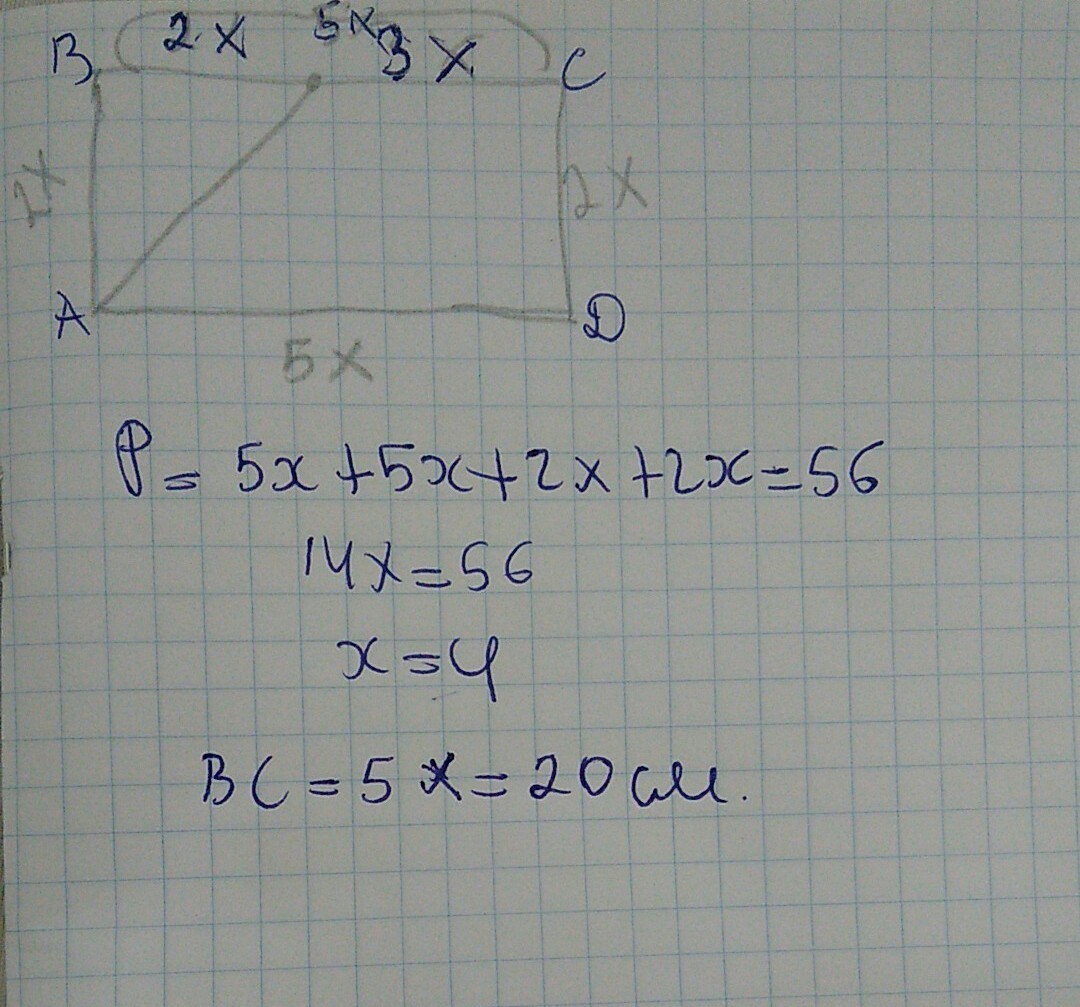 5x
B 2x 3x C
2x 2x
A D
5x
P = 5x + 5x + 2x + 2x = 56
14x = 56
x = 4
BC = 5x = 20 см.